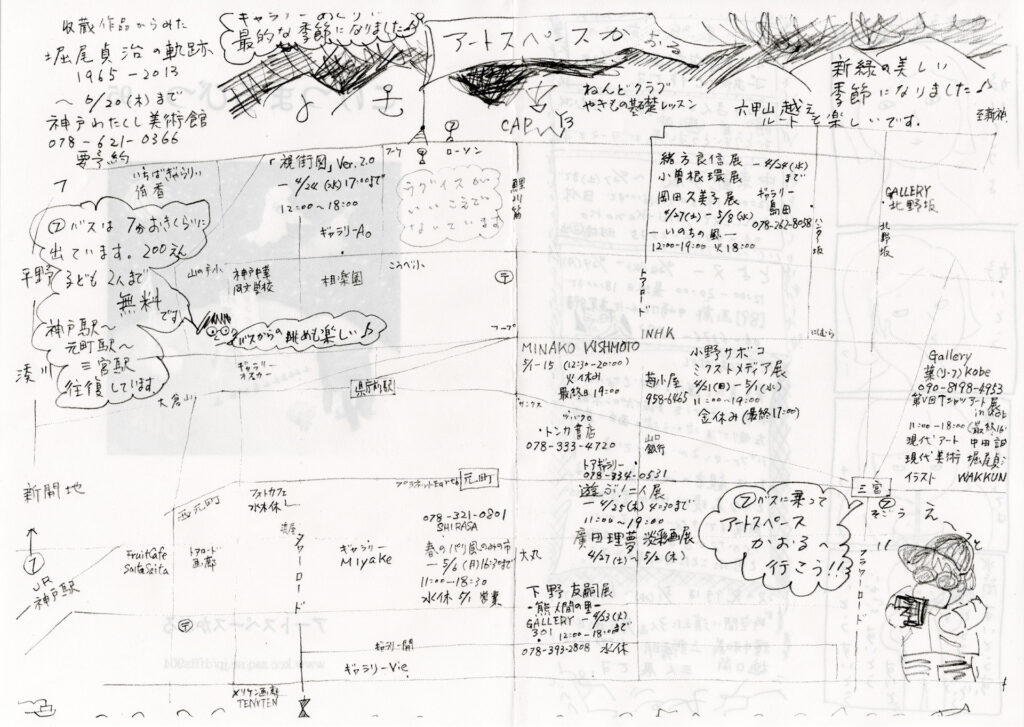 収蔵作品からみた
堀尾貞治の軌跡
1965-2013
〜6/20(木)まで
神戸わたくし美術館
078-621-0366
要予約
ギャラリーめぐりに
最的な季節になりました♪
アートスペースかおる
ねんどクラブ
やきもの基礎レッスン
CAP
Y3
六甲山越え
ルートも楽しいです。
新緑の美しい
季節になりました♪
至新神
いちばぎゃらりぃ
侑香
「視街図」Ver.2.0
-4/24(水)17:00まで
12:00〜18:00
ギャラリーAo
ローソン
ウグイスが
いいこえで
ないています
鯉川筋
緒方良信展
小曽根環展
-4/24(水)
まで
岡田久美子展
4/27(土)-5/8(水)
-いのちの風-
12:00-19:00 火18:00
ギャラリー
島田
078-262-8058
ハンター坂
GALLERY
北野坂
北野坂
⑦バスは7分おきくらいに
出ています。200えん
子ども2人まで
無料
です
平野
神戸駅〜
元町駅〜
三宮駅
往復しています
湊川
山の手小
神戸中華
同文学校
相楽園
こうべ小
〒
トアロード
バスからの眺めも楽しい♪
フープ
INHK
にしむら
ギャラリー
オスカー
県庁前駅
大倉山
MINAKO KISHMOTO
5/1-15 (12:30-20:00)
火休み
最終日19:00
サンクス
トンカ書店
078-333-4720
苺小屋
958-6465
小野サボコ
ミクストメディア展
4/21(日)-5/1(水)
11:00〜19:00
金休み(最終17:00)
山口
銀行
Gallery
葉(リーフ)Kobe
090-8198-4953
第VI回Tシャツアート展
11:00-18:00(最終16
現代アート 中田誥
現代美術 堀尾貞
イラスト WAKKUN
トアギャラリー
078-334-0531
遊ぶ!二人展
-4/25(木)4:30まで
11:00〜19:00
廣田理夢淡彩画展
4/27(土)〜5/2(木)
新開地
西元町
フォトカフェ
水木休
元町
三宮
そごう
⑦
JR
神戸駅
FruitCafe
SaitaSaita
アロード
画廊
タワーロード
ギャラリー
Miyake
078-321-0801
SHIRASA
春のパリ風のみの市
-5/6(月)16:30まで
11:00-18:30
水休 5/1 営業
大丸
⑦バスに乗って
アートスペース
かおるへ
行こう!!
フラワーロード
えっと
下野友嗣展
-熊人間の里-
GALLERY
301
-4/23(火)
まで
12:00-18:00
078-393-2808 水休
〒
ギャラリー間
ギャラリーVie
メリケン画廊
TENTEN